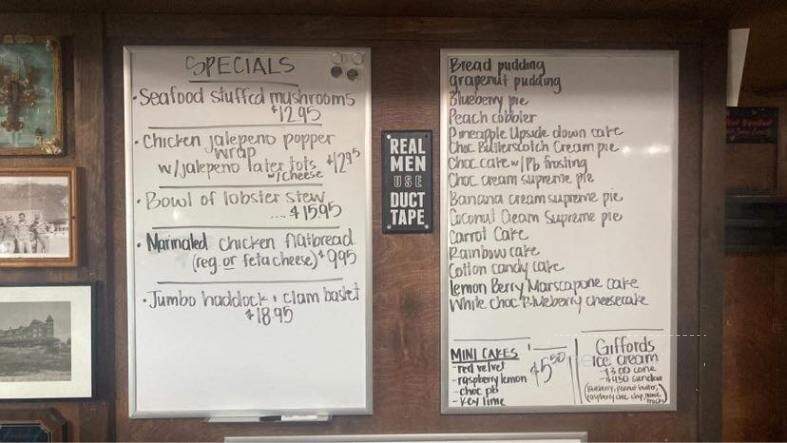 SPECIALS
· Seafood stuffed mushrooms
$12.95
· Chicken jalepeno popper
wrap
w/jalepeno tater tots $12.95
w/cheese
· Bowl of lobster stew
.... $15.95
· Marinated chicken flatbread
(reg. or feta cheese) $9.95
· Jumbo haddock + clam basket
$18.95
REAL
MEN
USE
DUCT
TAPE
Bread pudding
grapenut pudding
Blueberry pie
Peach cobbler
Pineapple Upside down cake
Choc Butterscotch Cream pie
Choc cake w/ Pb frosting
Choc cream supreme pie
Banana cream supreme pie
Coconut Cream Supreme pie
Carrot Cake
Rainbow cake
Cotton candy cake
lemon Berry Marscapone cake
White Choc Blueberry cheesecake
MINI CAKES
- red velvet
- raspberry lemon
- choc pb
- Key lime
$5.50
Giffords
ICE cream
$3.00 cone
$4.50 sundae